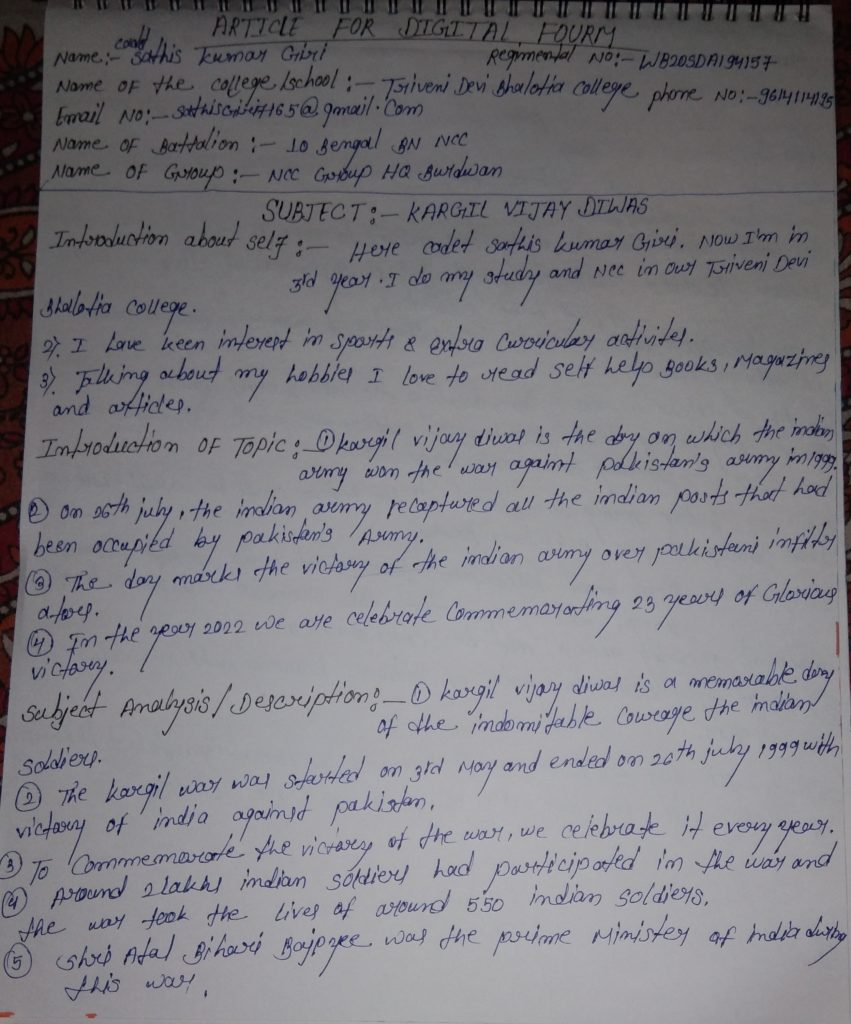 ARTICLE FOR DIGITAL FOURM
Name:- cadet Sathis Kumar Giri Regimental No:- WB20SDA194157
Name OF the college/school:- Triveni Devi Bhalotia College phone No:-9614114195
Email No:- @gmail.com
Name OF Battalion:- 10 Bengal BN NCC
Name OF Group:- NCC Group HQ Burdwan
SUBJECT:- KARGIL VIJAY DIWAS
Introduction about self:- Here cadet Sathis Kumar Giri. Now I'm in
3rd year. I do my study and NCC in our Triveni Devi
Bhalotia College.
2). I have keen interest in sports & extra curricular activites.
3). Talking about my hobbies I love to read self help Books, Magazines
and articles.
Introduction OF Topic:- ① kargil vijay diwas is the day on which the indian
army won the war against pakistan's army in 1999.
② on 26th july, the indian army recaptured all the indian posts that had
been occupied by pakistan's Army.
③ The day marks the victory of the indian army over pakistani infiltr
ators.
④ In the year 2022 we are celebrate Commemorating 23 years of Glorious
victory.
Subject Analysis/Description:- ① kargil vijay diwas is a memorable day
of the indomitable courage the indian
soldiers.
② The kargil war was started on 3rd May and ended on 26th july 1999 with
victory of india against pakistan.
③ To Commemorate the victory of the war, we celebrate it every year.
④ Around 2 lakhs indian soldiers had participated in the war and
the war took the lives of around 550 indian soldiers.
⑤ Shri Atal Bihari Bajpyee was the prime Minister of india during
this war.